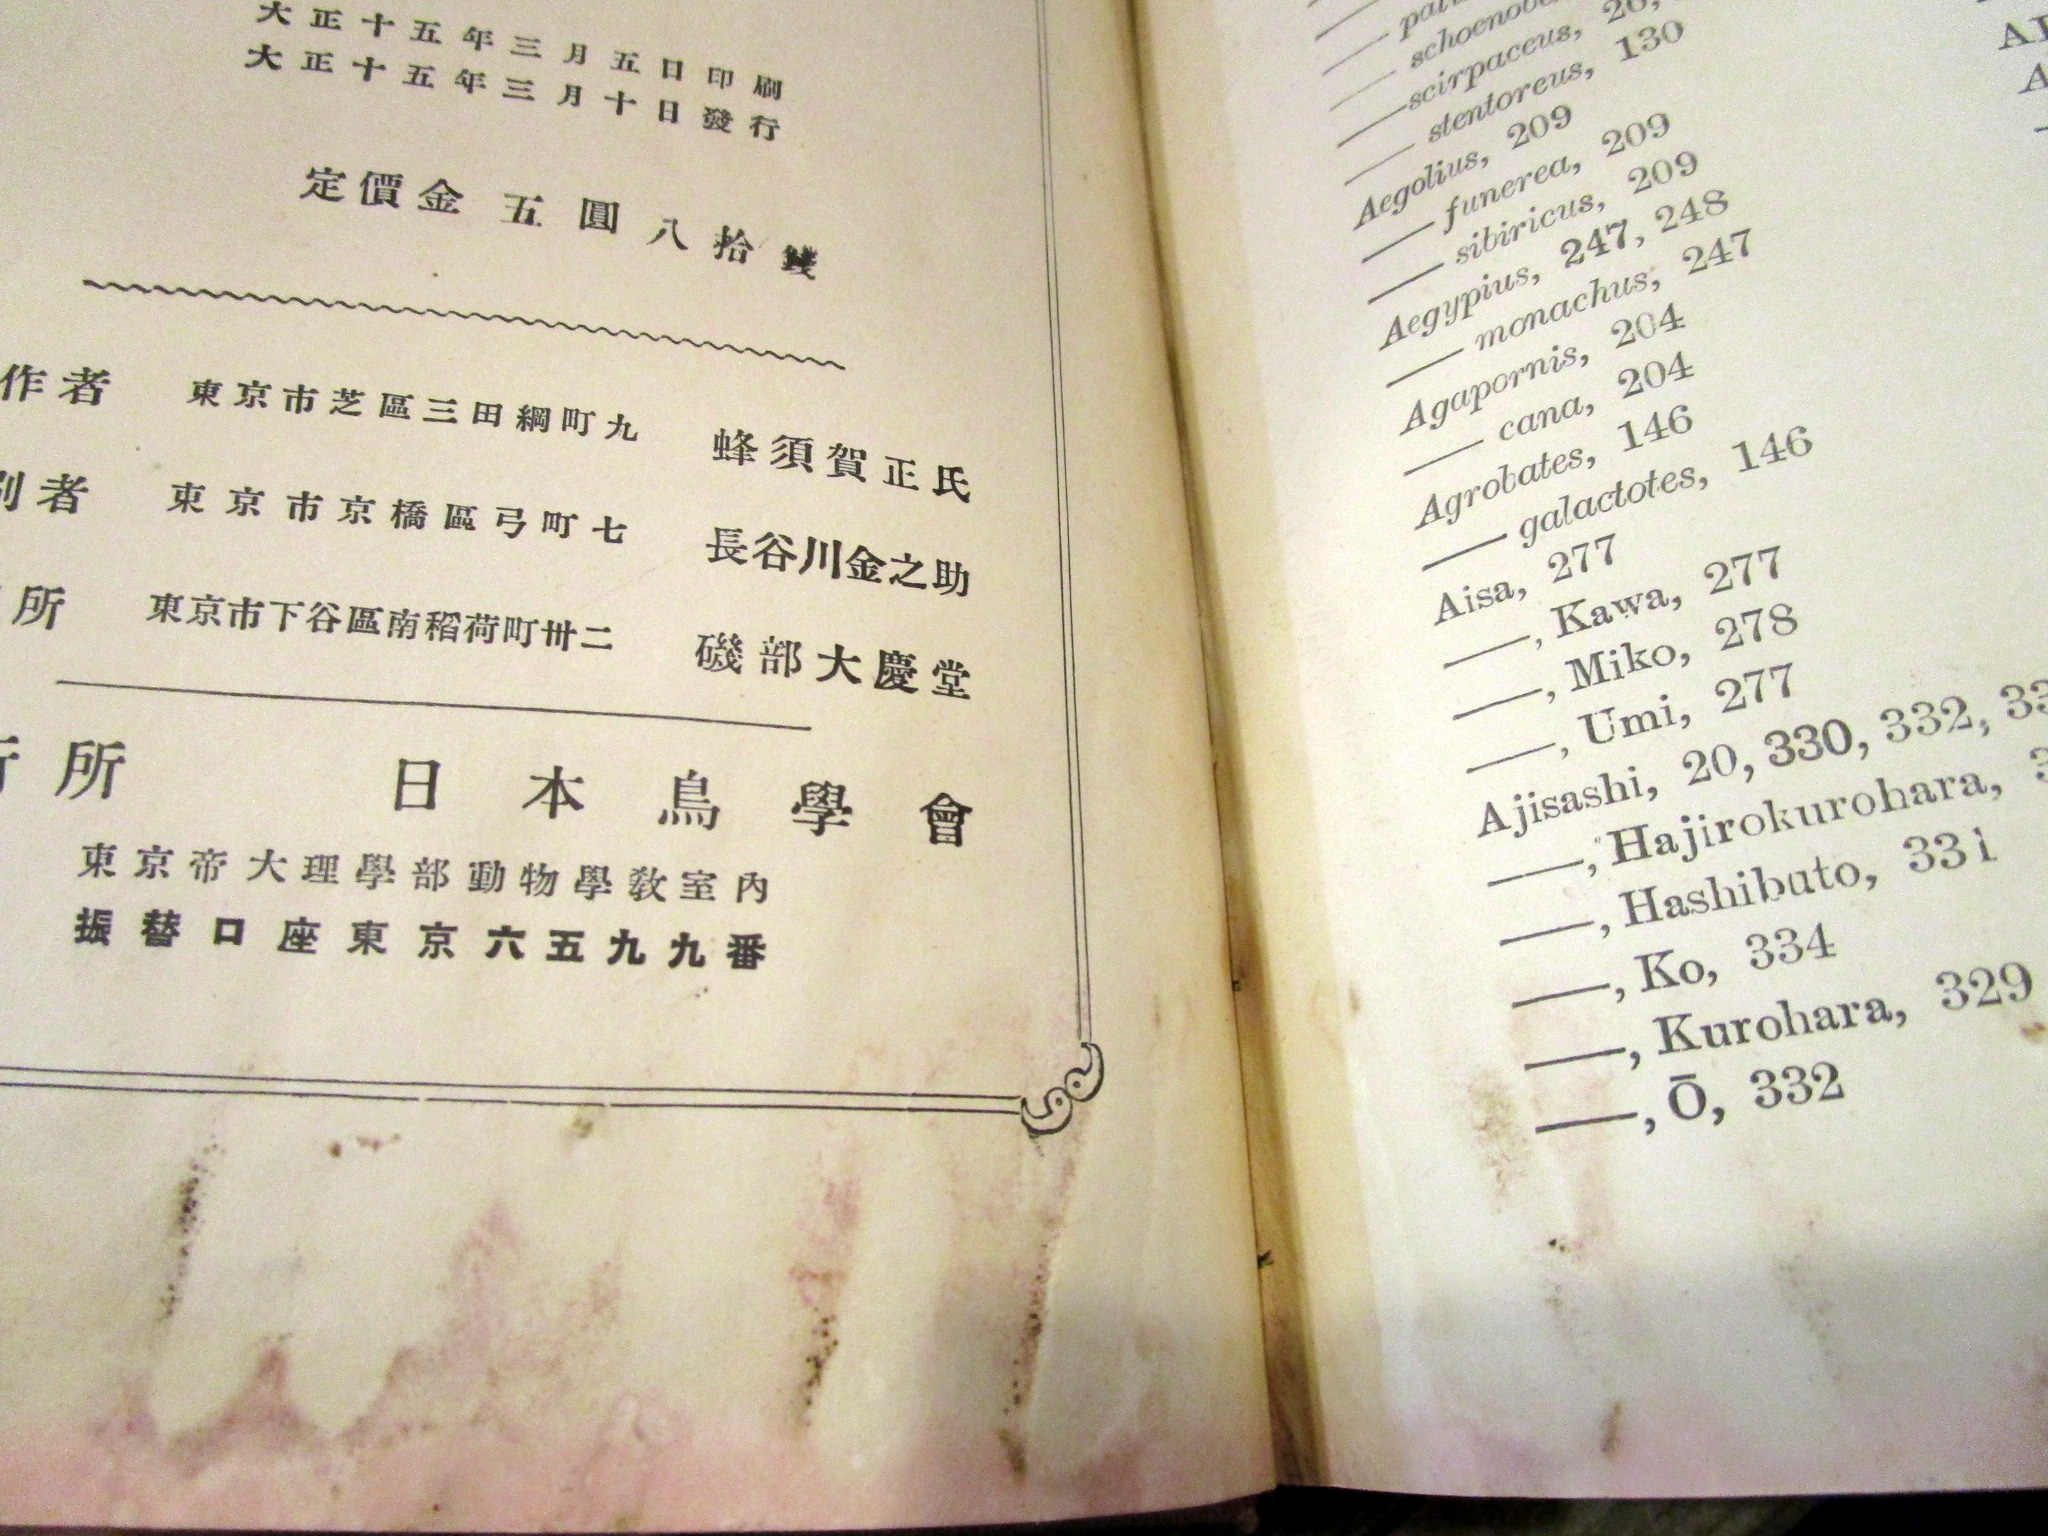 大正十五年三月五日印刷
大正十五年三月十日發行
定價金 五圓八拾錢
作者 東京市芝區三田綱町九 蜂須賀正氏
刷者 東京市京橋區弓町七 長谷川金之助
所 東京市下谷區南稻荷町卅二 磯部大慶堂
行所 日本鳥學會
東京帝大理學部動物學教室內
振替口座東京六五九九番
—— schoenob
—— scirpaceus, 26,
—— stentoreus, 130
Aegolius, 209
—— funerea, 209
—— sibiricus, 209
Aegypius, 247, 248
—— monachus, 247
Agapornis, 204
—— cana, 204
Agrobates, 146
—— galactotes, 146
Aisa, 277
——, Kawa, 277
——, Miko, 278
——, Umi, 277
Ajisashi, 20, 330, 332, 33
——, Hajirokurohara, 3
——, Hashibuto, 331
——, Ko, 334
——, Kurohara, 329
——, Ō, 332